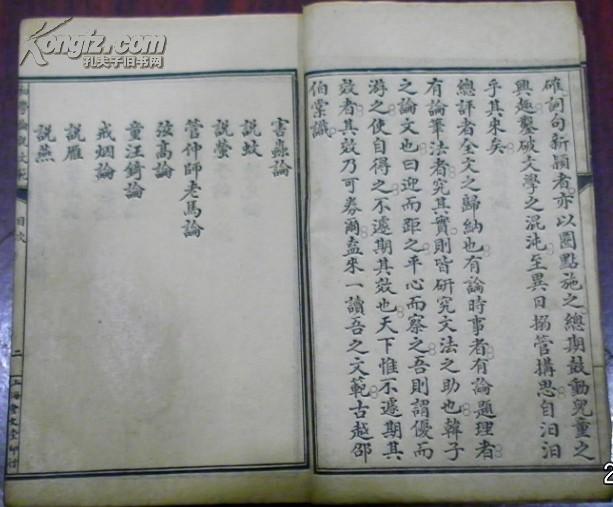 Kongfz.com
孔夫子旧书网
確詞句新穎者亦以圈點施之總期鼓動兒童之
興趣鑿破文學之混沌至異日搦管搆思自汩汩
乎其來矣
總評者全文之歸納也有論時事者有論題理者
有論筆法者究其實則皆研究文法之助也韓子
之論文也曰迎而距之平心而察之吾則謂優而
游之使自得之不遽期其效也天下惟不遽期其
效者其效乃可券爾盍來一讀吾之文範古越邵
伯棠識
害蟲論
說蚊
說螢
管仲師老馬論
汝高論
童汪錡論
戒烟論
說雁
說燕
論說文範
目次
二
上海會文堂印行
2